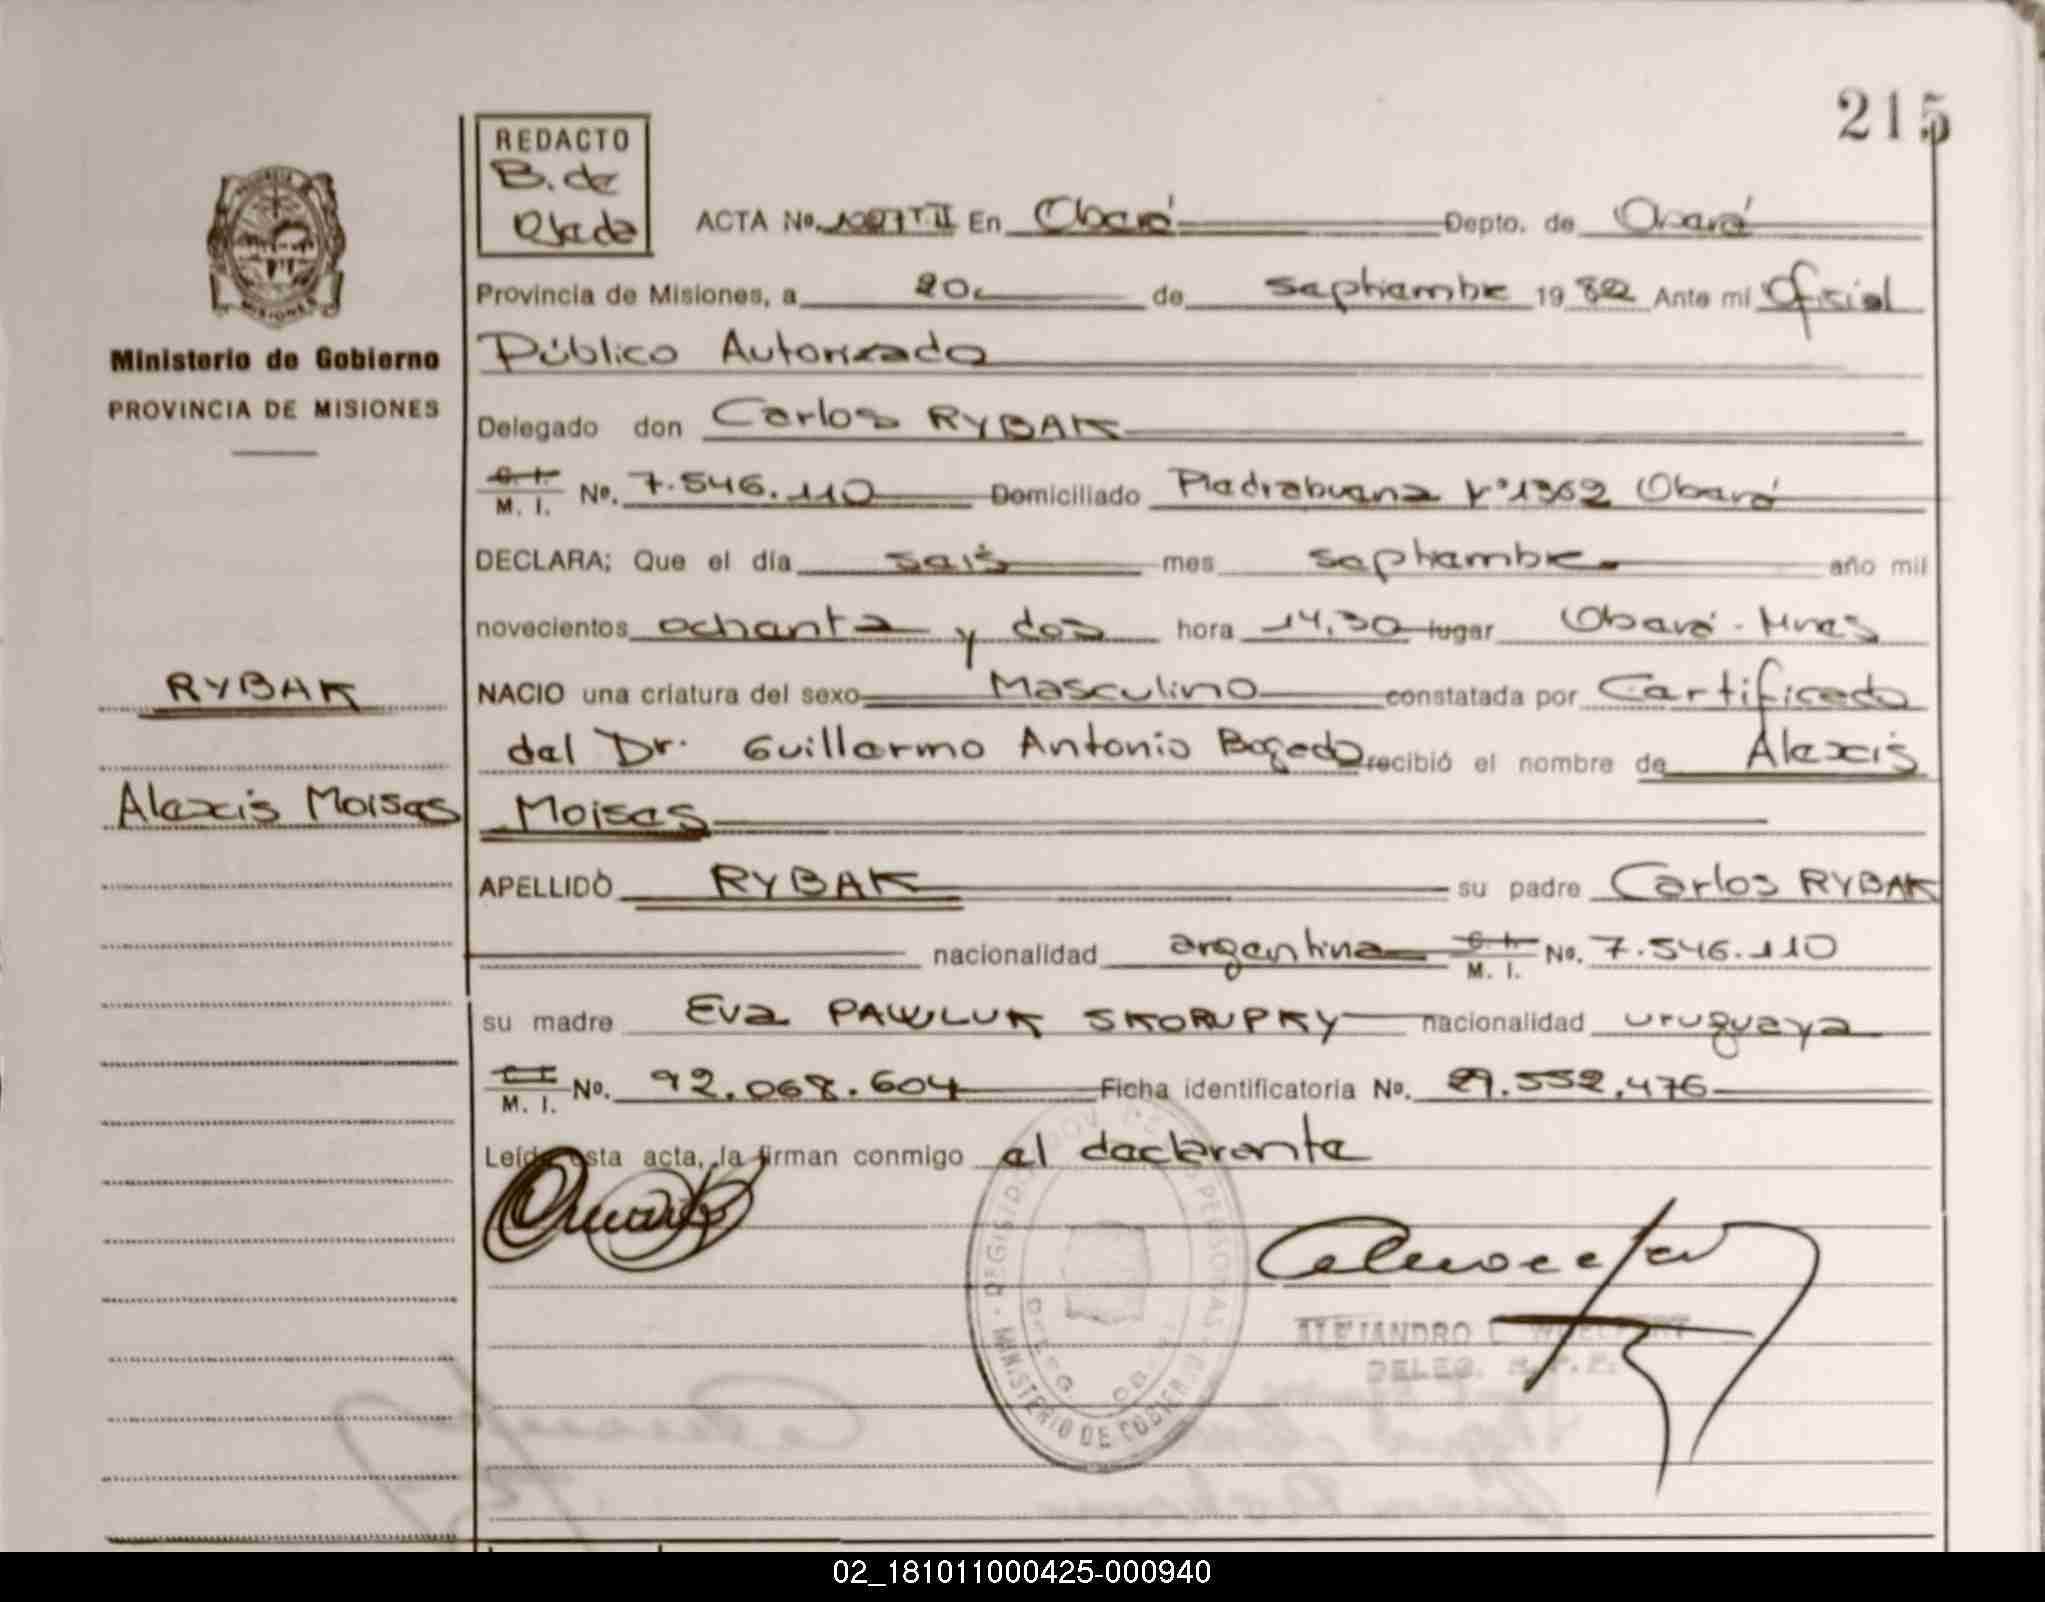 215
REDACTO
B. de
Ojeda
ACTA No. 1087 T II En Oberá Depto. de Oberá
Provincia de Misiones, a 20 de septiembre 1982 Ante mi Oficial
Público Autorizado
Ministerio de Gobierno
PROVINCIA DE MISIONES
Delegado don Carlos RYBAK
C. I. M. I. No. 7.546.110 Domiciliado Piedrabuena Nº 1362 Oberá
DECLARA; Que el día seis mes septiembre año mil
novecientos ochenta y dos hora 14,30 lugar Oberá - Mnes
RYBAK
NACIO una criatura del sexo Masculino constatada por Certificado
del Dr. Guillermo Antonio Bogado recibió el nombre de Alexis
Alexis Moises
Moises
APELLIDO RYBAK su padre Carlos RYBAK
nacionalidad argentina C. I. M. I. No. 7.546.110
su madre Eva PAWLUK SKORUPKY nacionalidad uruguaya
C. I. M. I. No. 92.068.604 Ficha identificatoria No. 29.552.476
Leída esta acta, la firman conmigo el declarante
ALEJANDRO
DELEG. R.P.P.
MINISTERIO DE GOBIER
02_181011000425-000940